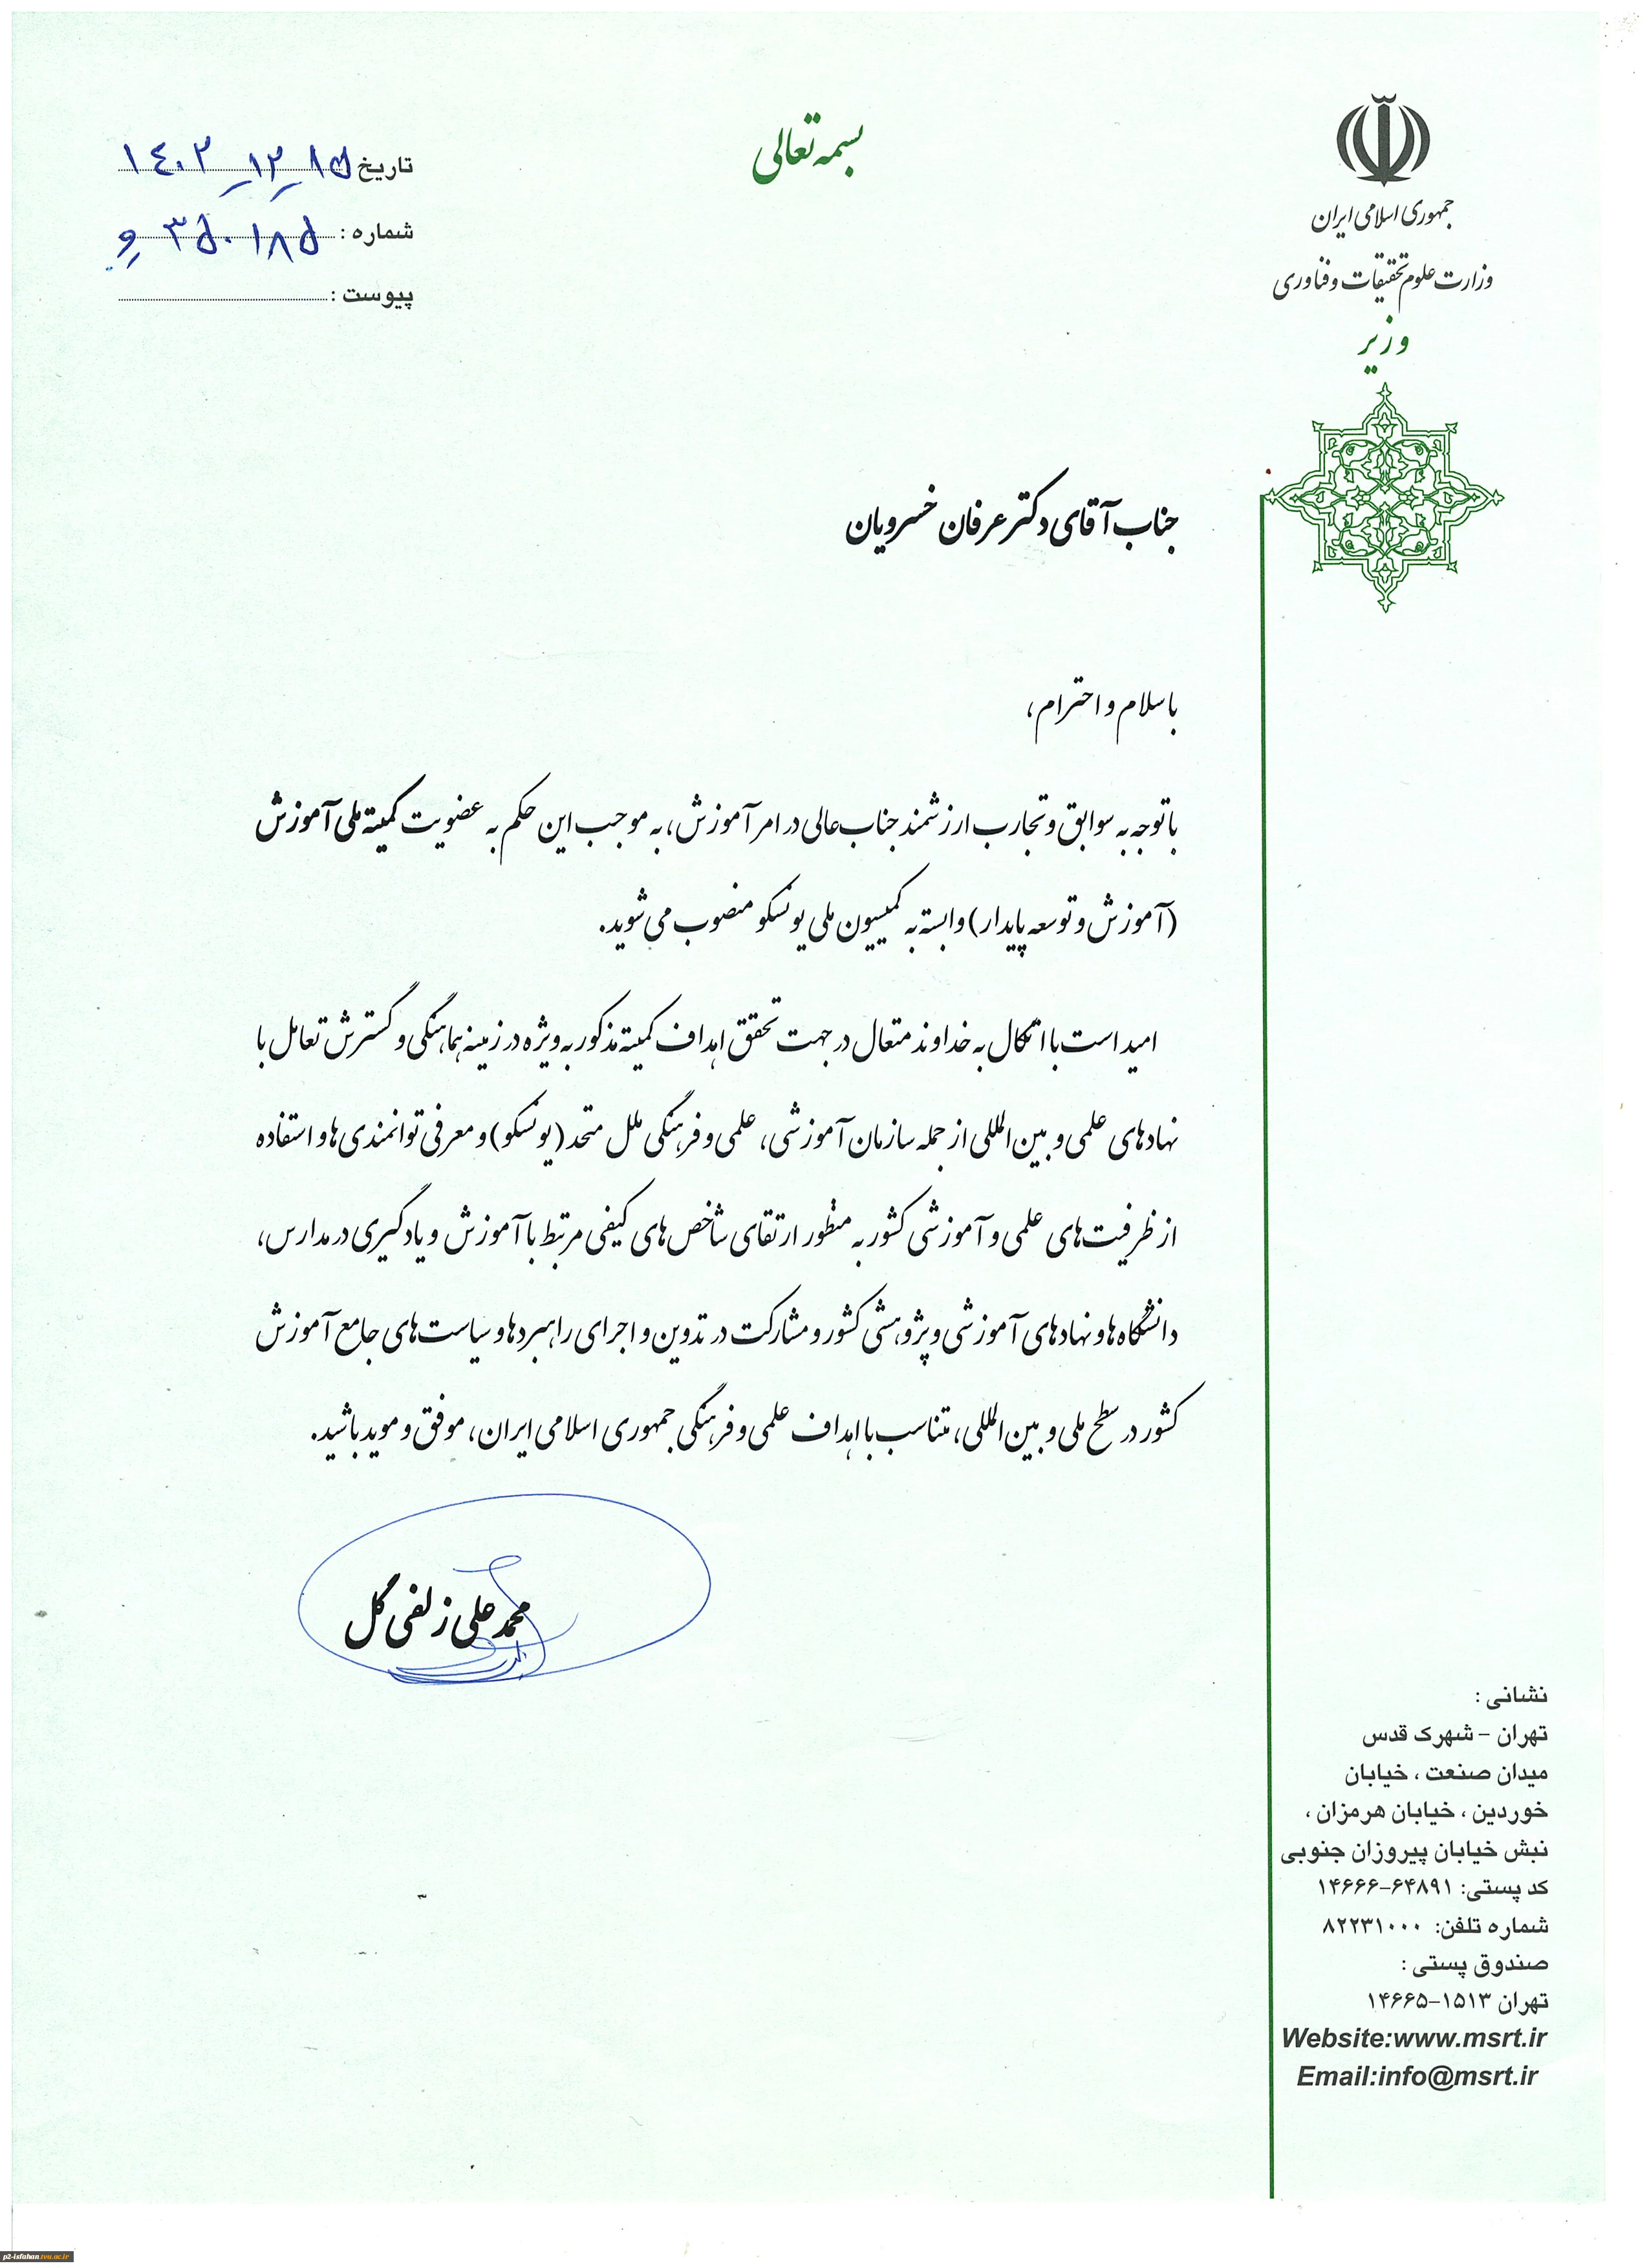 بسمه تعالی
جمهوری اسلامی ایران
وزارت علوم تحقیقات و فناوری
وزیر
تاریخ ۱٤۰۲-۱۲-۱۵
شماره : ۳۵۰۱۸۵ و
پیوست :
جناب آقای دکتر عرفان خسرویان
با سلام و احترام،
با توجه به سوابق و تجارب ارزشمند جناب عالی در امر آموزش، به موجب این حکم به عضویت کمیته ملی آموزش
(آموزش و توسعه پایدار) وابسته به کمیسیون ملی یونسکو منصوب می شوید.
امید است با اتکال به خداوند متعال در جهت تحقق اهداف کمیته مذکور به ویژه در زمینه هماهنگی و گسترش تعامل با
نهادهای علمی و بین المللی از جمله سازمان آموزشی، علمی و فرهنگی ملل متحد (یونسکو) و معرفی توانمندی ها و استفاده
از ظرفیت های علمی و آموزشی کشور به منظور ارتقای شاخص های کیفی مرتبط با آموزش و یادگیری در مدارس،
دانشگاه ها و نهادهای آموزشی و پژوهشی کشور و مشارکت در تدوین و اجرای راهبردها و سیاست های جامع آموزش
کشور در سطح ملی و بین المللی، متناسب با اهداف علمی و فرهنگی جمهوری اسلامی ایران، موفق و موید باشید.
محمد علی زلفی گل
نشانی :
تهران - شهرک قدس
میدان صنعت ، خیابان
خوردین ، خیابان هرمزان ،
نبش خیابان پیروزان جنوبی
کد پستی: ۱۴۶۶۶-۶۴۸۹۱
شماره تلفن: ۸۲۲۳۱۰۰۰
صندوق پستی :
تهران ۱۵۱۳-۱۴۶۶۵
Website:www.msrt.ir
Email:info@msrt.ir
p2-isfahan.tvu.ac.ir